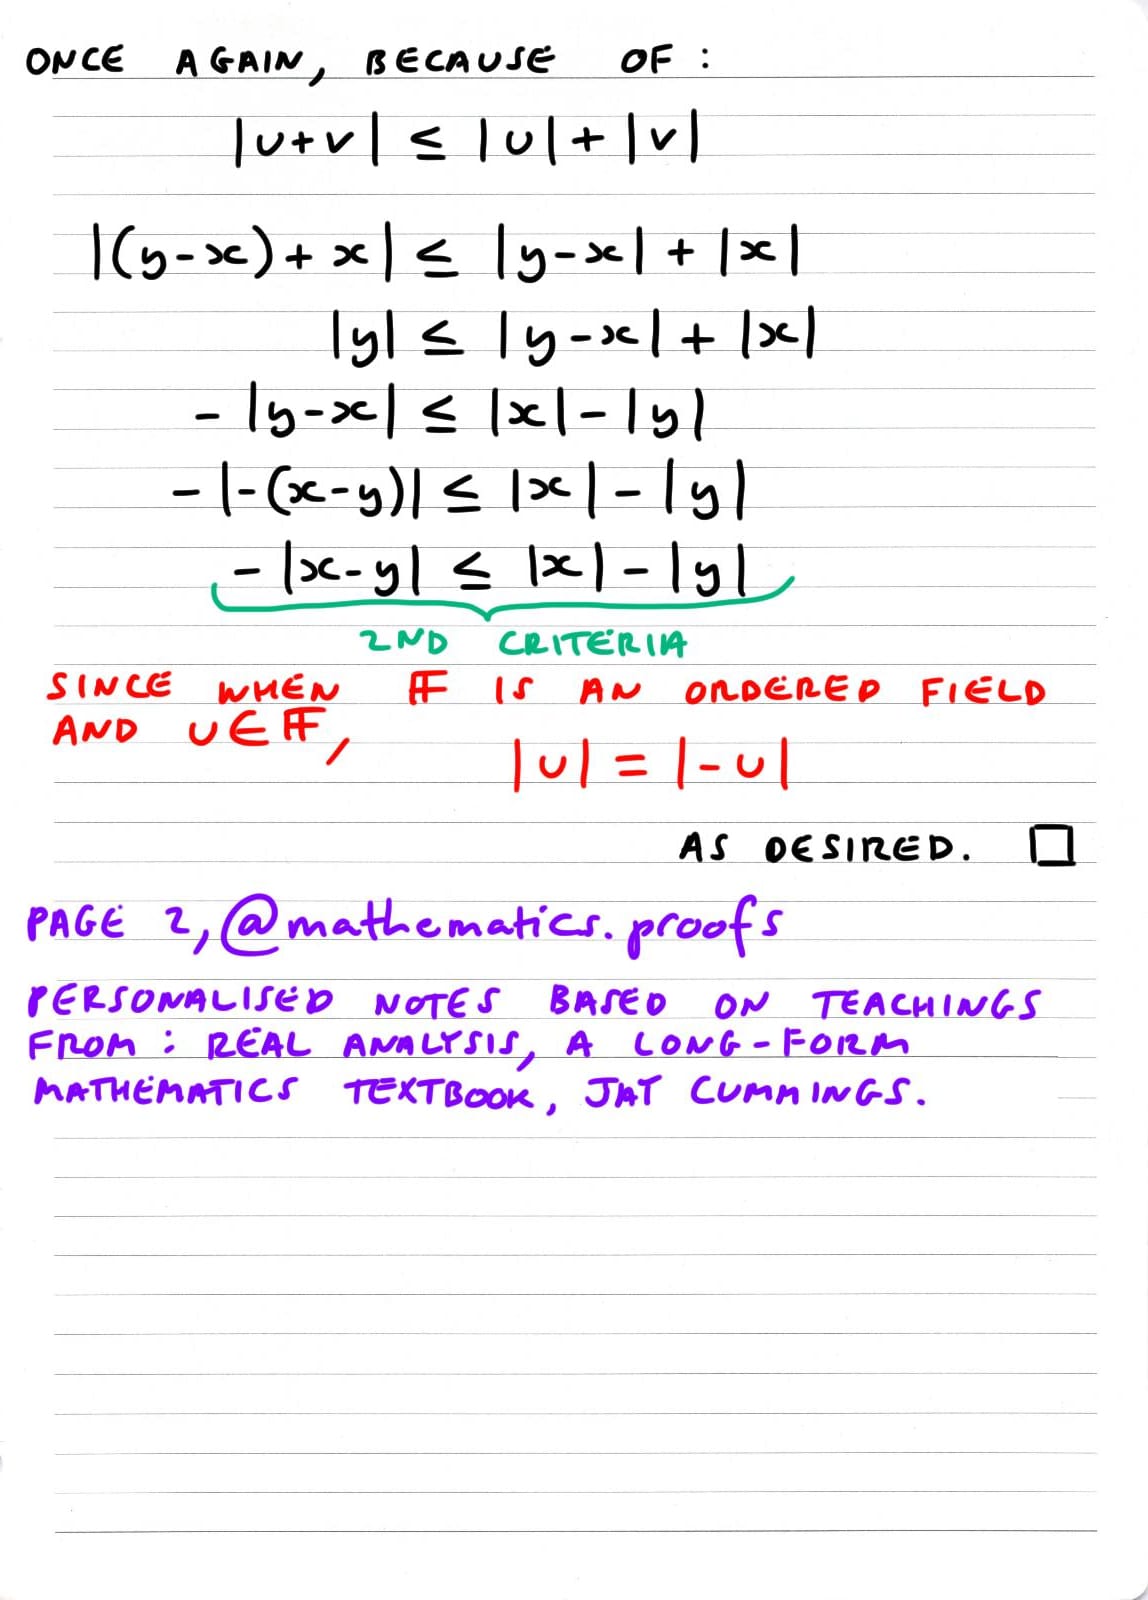 ONCE AGAIN, BECAUSE OF :
|u+v| ≤ |u|+|v|
|(y-x)+x| ≤ |y-x|+|x|
|y| ≤ |y-x|+|x|
-|y-x| ≤ |x|-|y|
-|-(x-y)| ≤ |x|-|y|
-|x-y| ≤ |x|-|y|
2ND CRITERIA
SINCE WHEN 𝔽 IS AN ORDERED FIELD
AND u∈𝔽,
|u| = |-u|
AS DESIRED. □
PAGE 2, @mathematics.proofs
PERSONALISED NOTES BASED ON TEACHINGS
FROM : REAL ANALYSIS, A LONG-FORM
MATHEMATICS TEXTBOOK, JAY CUMMINGS.